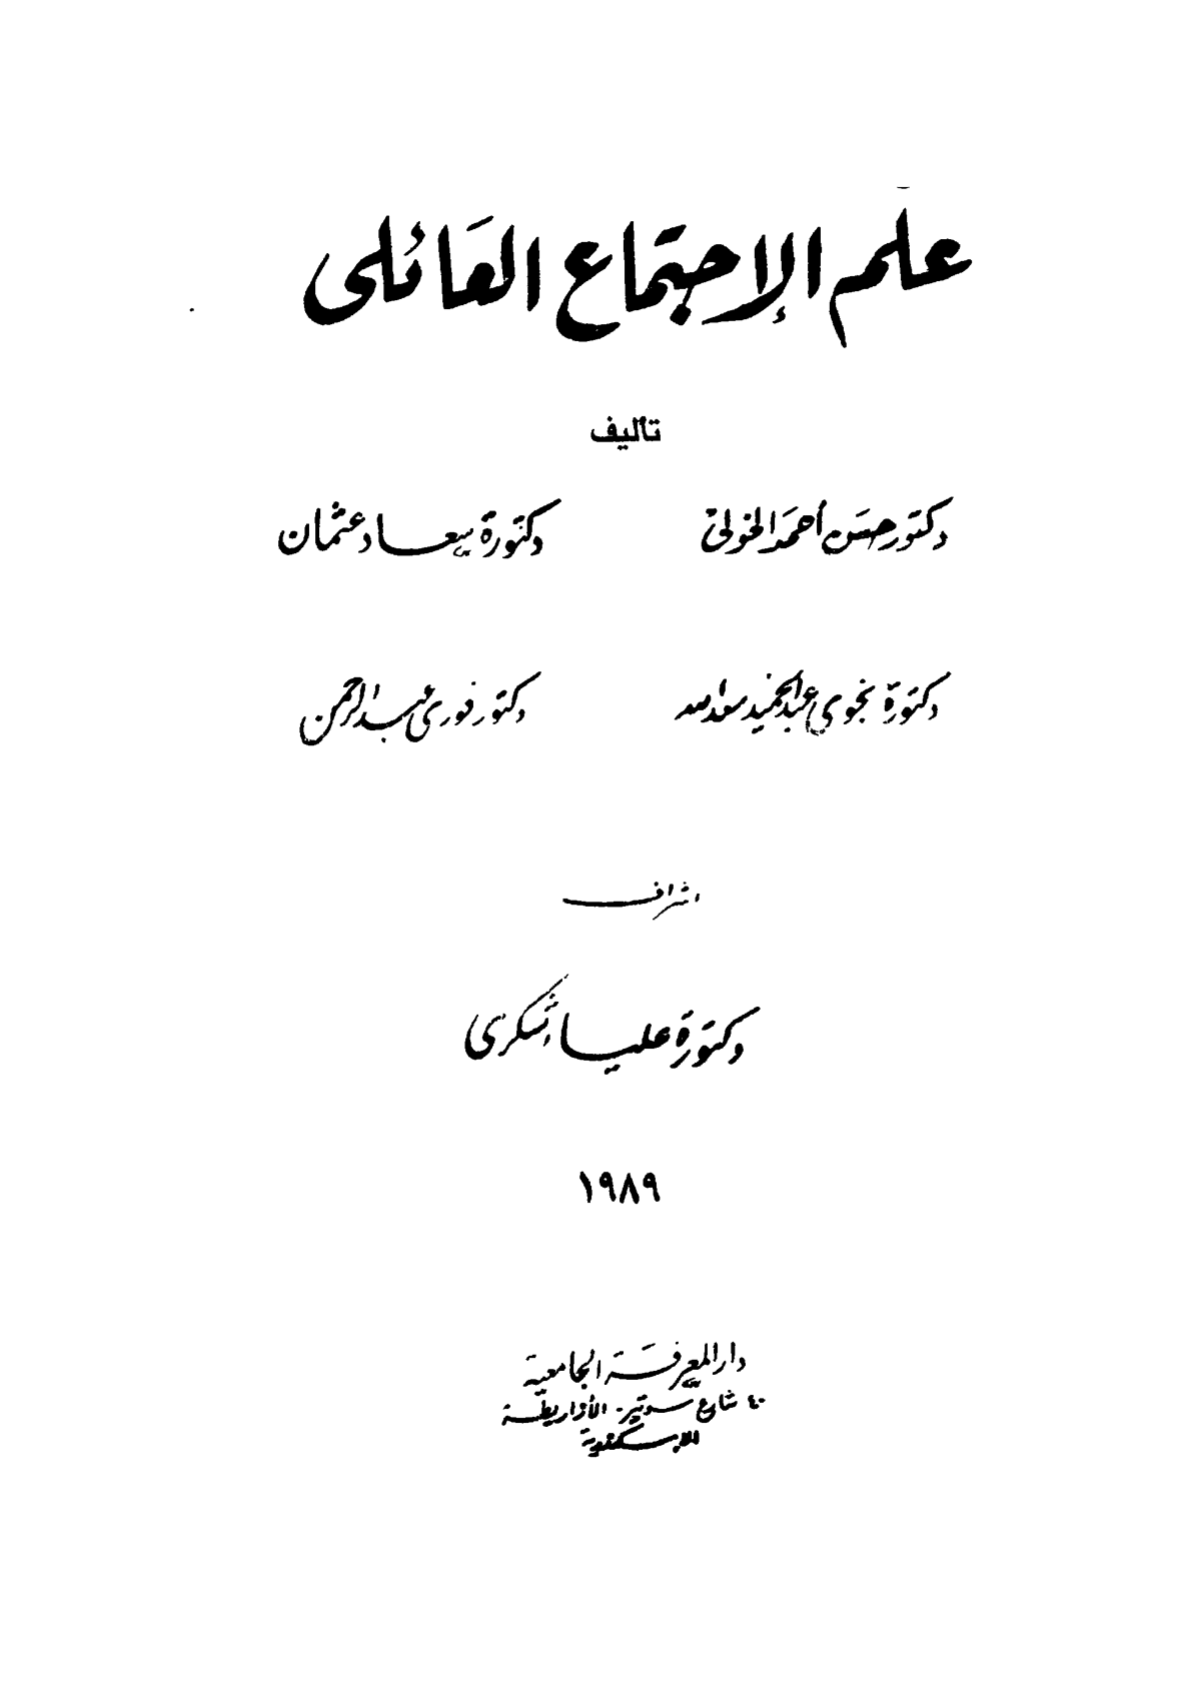 علم الإجتماع العائلى
تأليف
دكتور حسن أحمد الخولى دكتورة سعاد عثمان
دكتورة نجوى عبد الحميد سعد الله دكتور فوزى عبد الرحمن
اشراف
دكتورة علياء شكرى
١٩٨٩
دار المعرفة الجامعية
٤٠ شارع سوتير - الأزاريطة
الاسكندرية